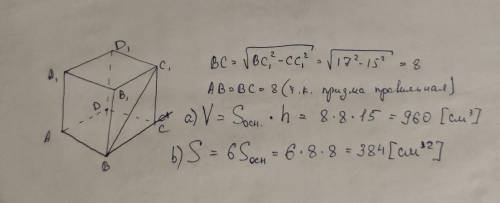 D₁
A₁ C₁
B₁
D
A C
B
BC = √(BC₁² - CC₁²) = √(17² - 15²) = 8
AB = BC = 8 (т.к. призма правильная)
a) V = Sосн. · h = 8 · 8 · 15 = 960 [см³]
b) S = 6Sосн = 6 · 8 · 8 = 384 [см²]